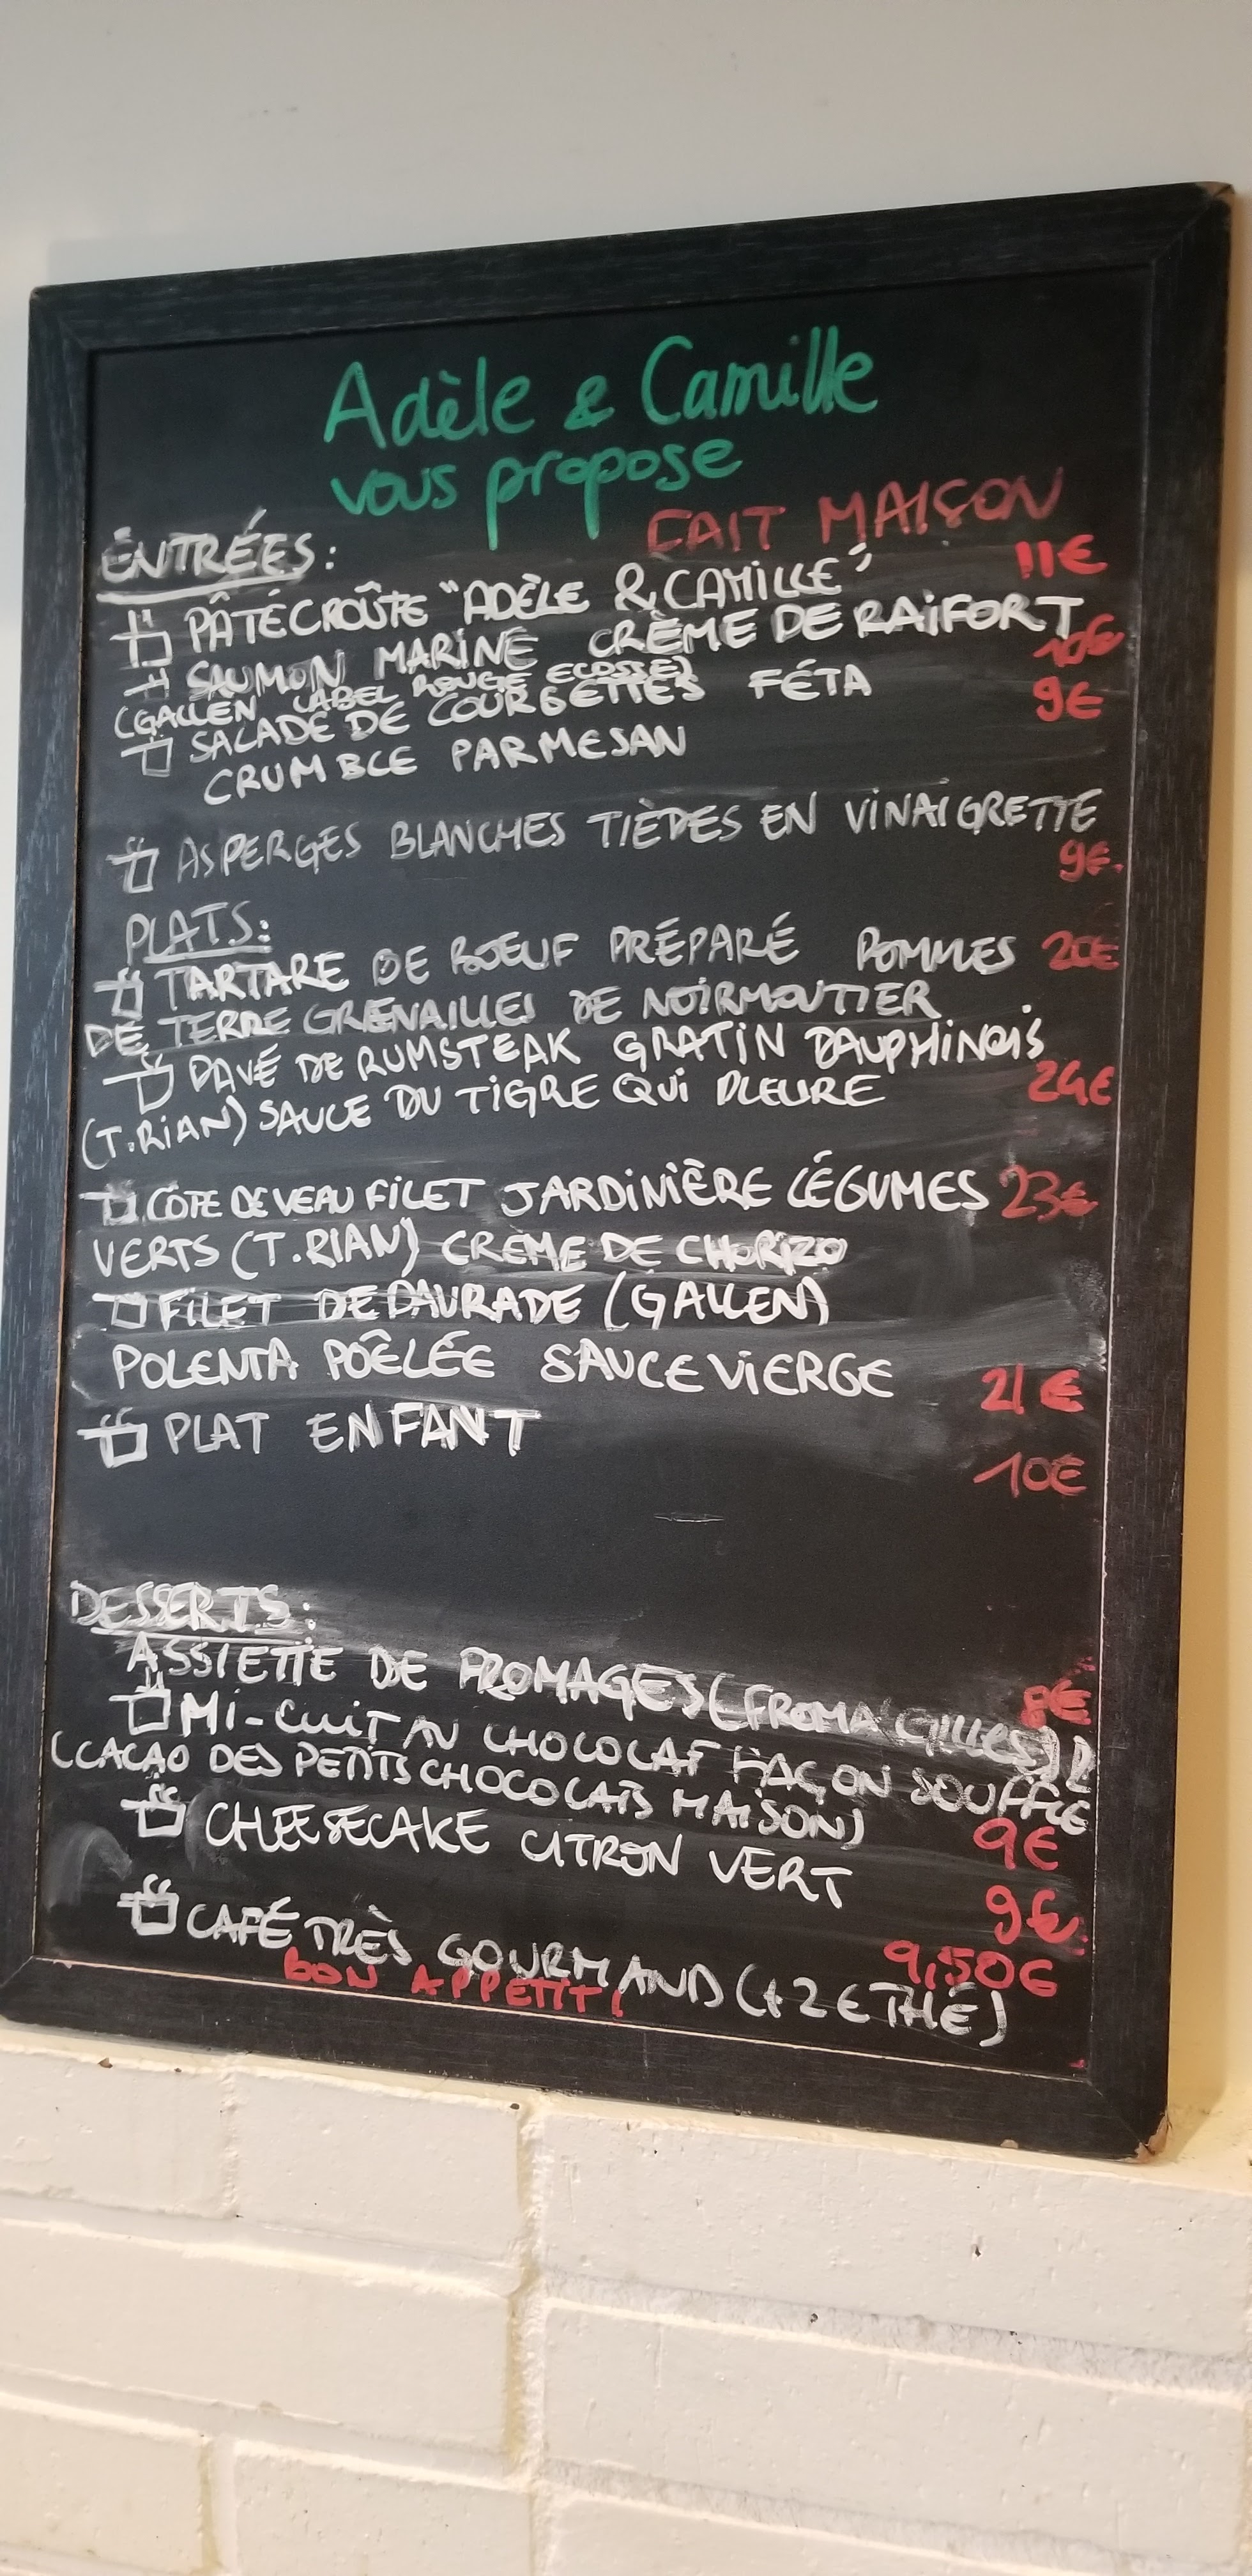 Adèle & Camille
vous propose
FAIT MAISON
ENTRÉES:
PÂTÉ CROÛTE "ADÈLE & CAMILLE" 11€
SAUMON MARINÉ CRÈME DE RAIFORT 10€
(GALLEN LABEL ROUGE ECOSSE)
SALADE DE COURGETTES FÉTA 9€
CRUMBLE PARMESAN
ASPERGES BLANCHES TIÈDES EN VINAIGRETTE
9€.
PLATS:
TARTARE DE BOEUF PRÉPARÉ POMMES 20€
DE TERRE GRENAILLES DE NOIRMOUTIER
PAVÉ DE RUMSTEAK GRATIN DAUPHINOIS
(T.RIAN) SAUCE DU TIGRE QUI PLEURE 24€
CÔTE DE VEAU FILET JARDINIÈRE LÉGUMES 23€
VERTS (T.RIAN) CRÈME DE CHORIZO
FILET DE DAURADE (GALLEN)
POLENTA POÊLÉE SAUCE VIERGE 21€
PLAT ENFANT
10€
DESSERTS:
ASSIETTE DE FROMAGES (FROMA'GILLES) 8€
MI-CUIT AU CHOCOLAT FAÇON SOUFFLÉ
(CACAO DES PETITS CHOCOLATS MAISON) 9€
CHEESECAKE CITRON VERT 9€
CAFÉ TRÈS GOURMAND (+2€ THÉ) 9,50€
BON APPÉTIT!